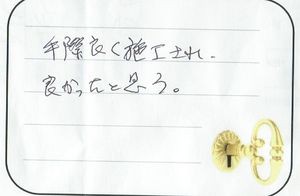 手際良く施工され、
良かったと思う。